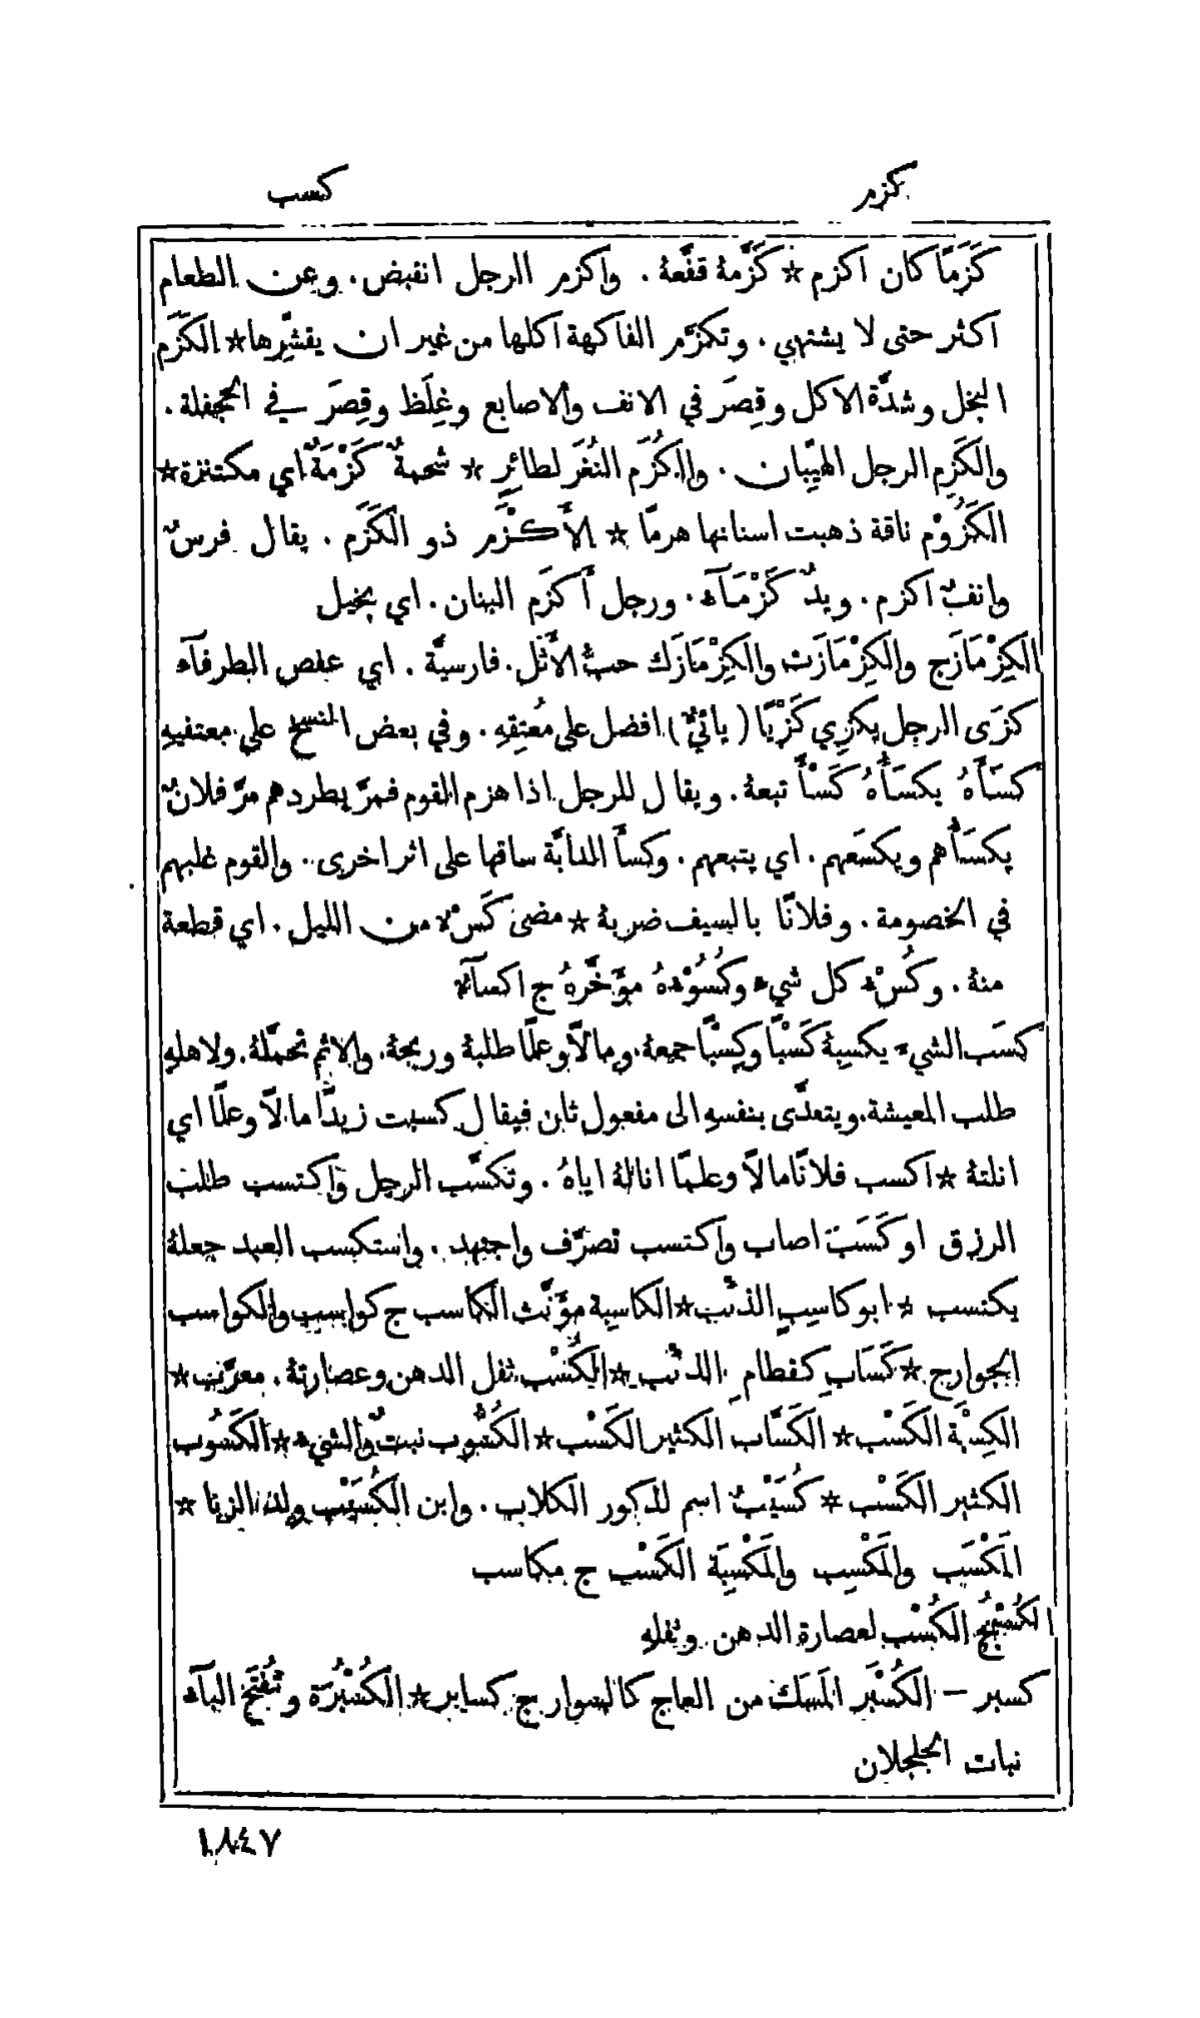 كزم
كسب
كَزَمًا كان اكزم * كَزَّمهُ قفّعهُ . واكزم الرجل انقبض . وعن الطعام
اكثر حتى لا يشتهي . وتكزّم الفاكهة اكلها من غير ان يقشّرها * الكَزَم
البخل وشدَّة الاكل وقِصَر في الانف والاصابع وغِلَظ وقِصَر في الجحفلة .
والكَزِم الرجل الهيّبان . والكُزَم النُغَر لطائرٍ * شحمةٌ كَزْمَةٌ اي مكتنزة *
الكَزُوْم ناقة ذهبت اسنانها هرمًا * الأَكْزَم ذو الكَزَم . يقال فرسٌ
وانفٌ اكزم . ويدٌ كَزْمَآء . ورجل أَكزَم البنان . اي بخيل
الكِزْمَازَج والكِزْمَازَت والكِزْمَازَك حبُّ الأَثْل . فارسيَّة . اي عفص الطرفآء
كزَى الرجل يكزِي كَزْيًا ( يائيٌّ ) افضل على مُعتِقِهِ . وفي بعض النسخ على معتفيهِ
كسَأَهُ يكسَأُهُ كَسْأً تبعهُ . ويقال للرجل اذا هزم القوم فمرَّ يطردهم مرَّ فلانٌ
يكسَأُهم ويكسَعهم . اي يتبعهم . وكسأَ الدابَّة ساقها على اثر اخرى . والقوم غلبهم
في الخصومة . وفلانًا بالسيف ضربهُ * مضى كَسْءٌ من الليل . اي قطعة
منهُ . وكُسْء كل شيء وكُسُوْءهُ مؤَخَّرهُ ج اكسآء
كسَب الشيء يكسِبهُ كَسْبًا وكِسْبًا جمعهُ . ومالاً وعلمًا طلبهُ وربحهُ . والاثم تحمَّلهُ . ولاهلهِ
طلب المعيشة . ويتعدَّى بنفسهِ الى مفعول ثانٍ فيقال كسبت زيدًا مالاً وعلمًا اي
انلتهُ * اكسب فلانًا مالاً وعلمًا انالهُ اياهُ . وتكسَّب الرجل واكتسب طلب
الرزق او كَسَبَ اصاب واكتسب تصرَّف واجتهد . واستكسب العبد جعلهُ
يكتسب * ابو كاسِبٍ الذئب * الكاسبة مؤَنَّث الكاسب ج كواسب والكواسب
الجوارح * كَسَابِ كقطامِ الذئب * الكُسْب ثفل الدهن وعصارتهُ . معرَّب *
الكِسْبَة الكَسْب * الكَسَّاب الكثير الكَسْب * الكُسُّوب نبتٌ والشيء * الكَسُوب
الكثير الكَسْب * كُسَيْبٌ اسم لذكور الكلاب . وابن الكُسَيْب ولد الزنا *
المَكْسَب والمَكْسِب والمَكْسِبَة الكَسْب ج مكاسب
الكُسْبُجُ الكُسْب لعصارة الدهن وثفلهِ
كسبر – الكُسْبَر المَسَك من العاج كالسوار ج كسابر * الكُسْبُرَة وتُفتَح البآء
نبات الجلجلان
١٨٤٧